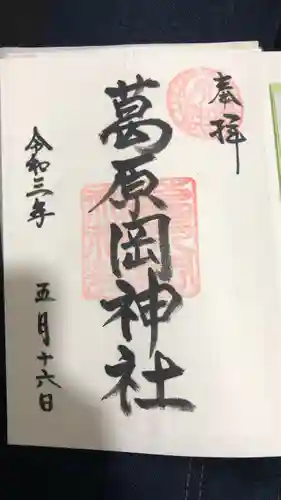 奉拝
葛原岡神社
令和三年 五月十六日